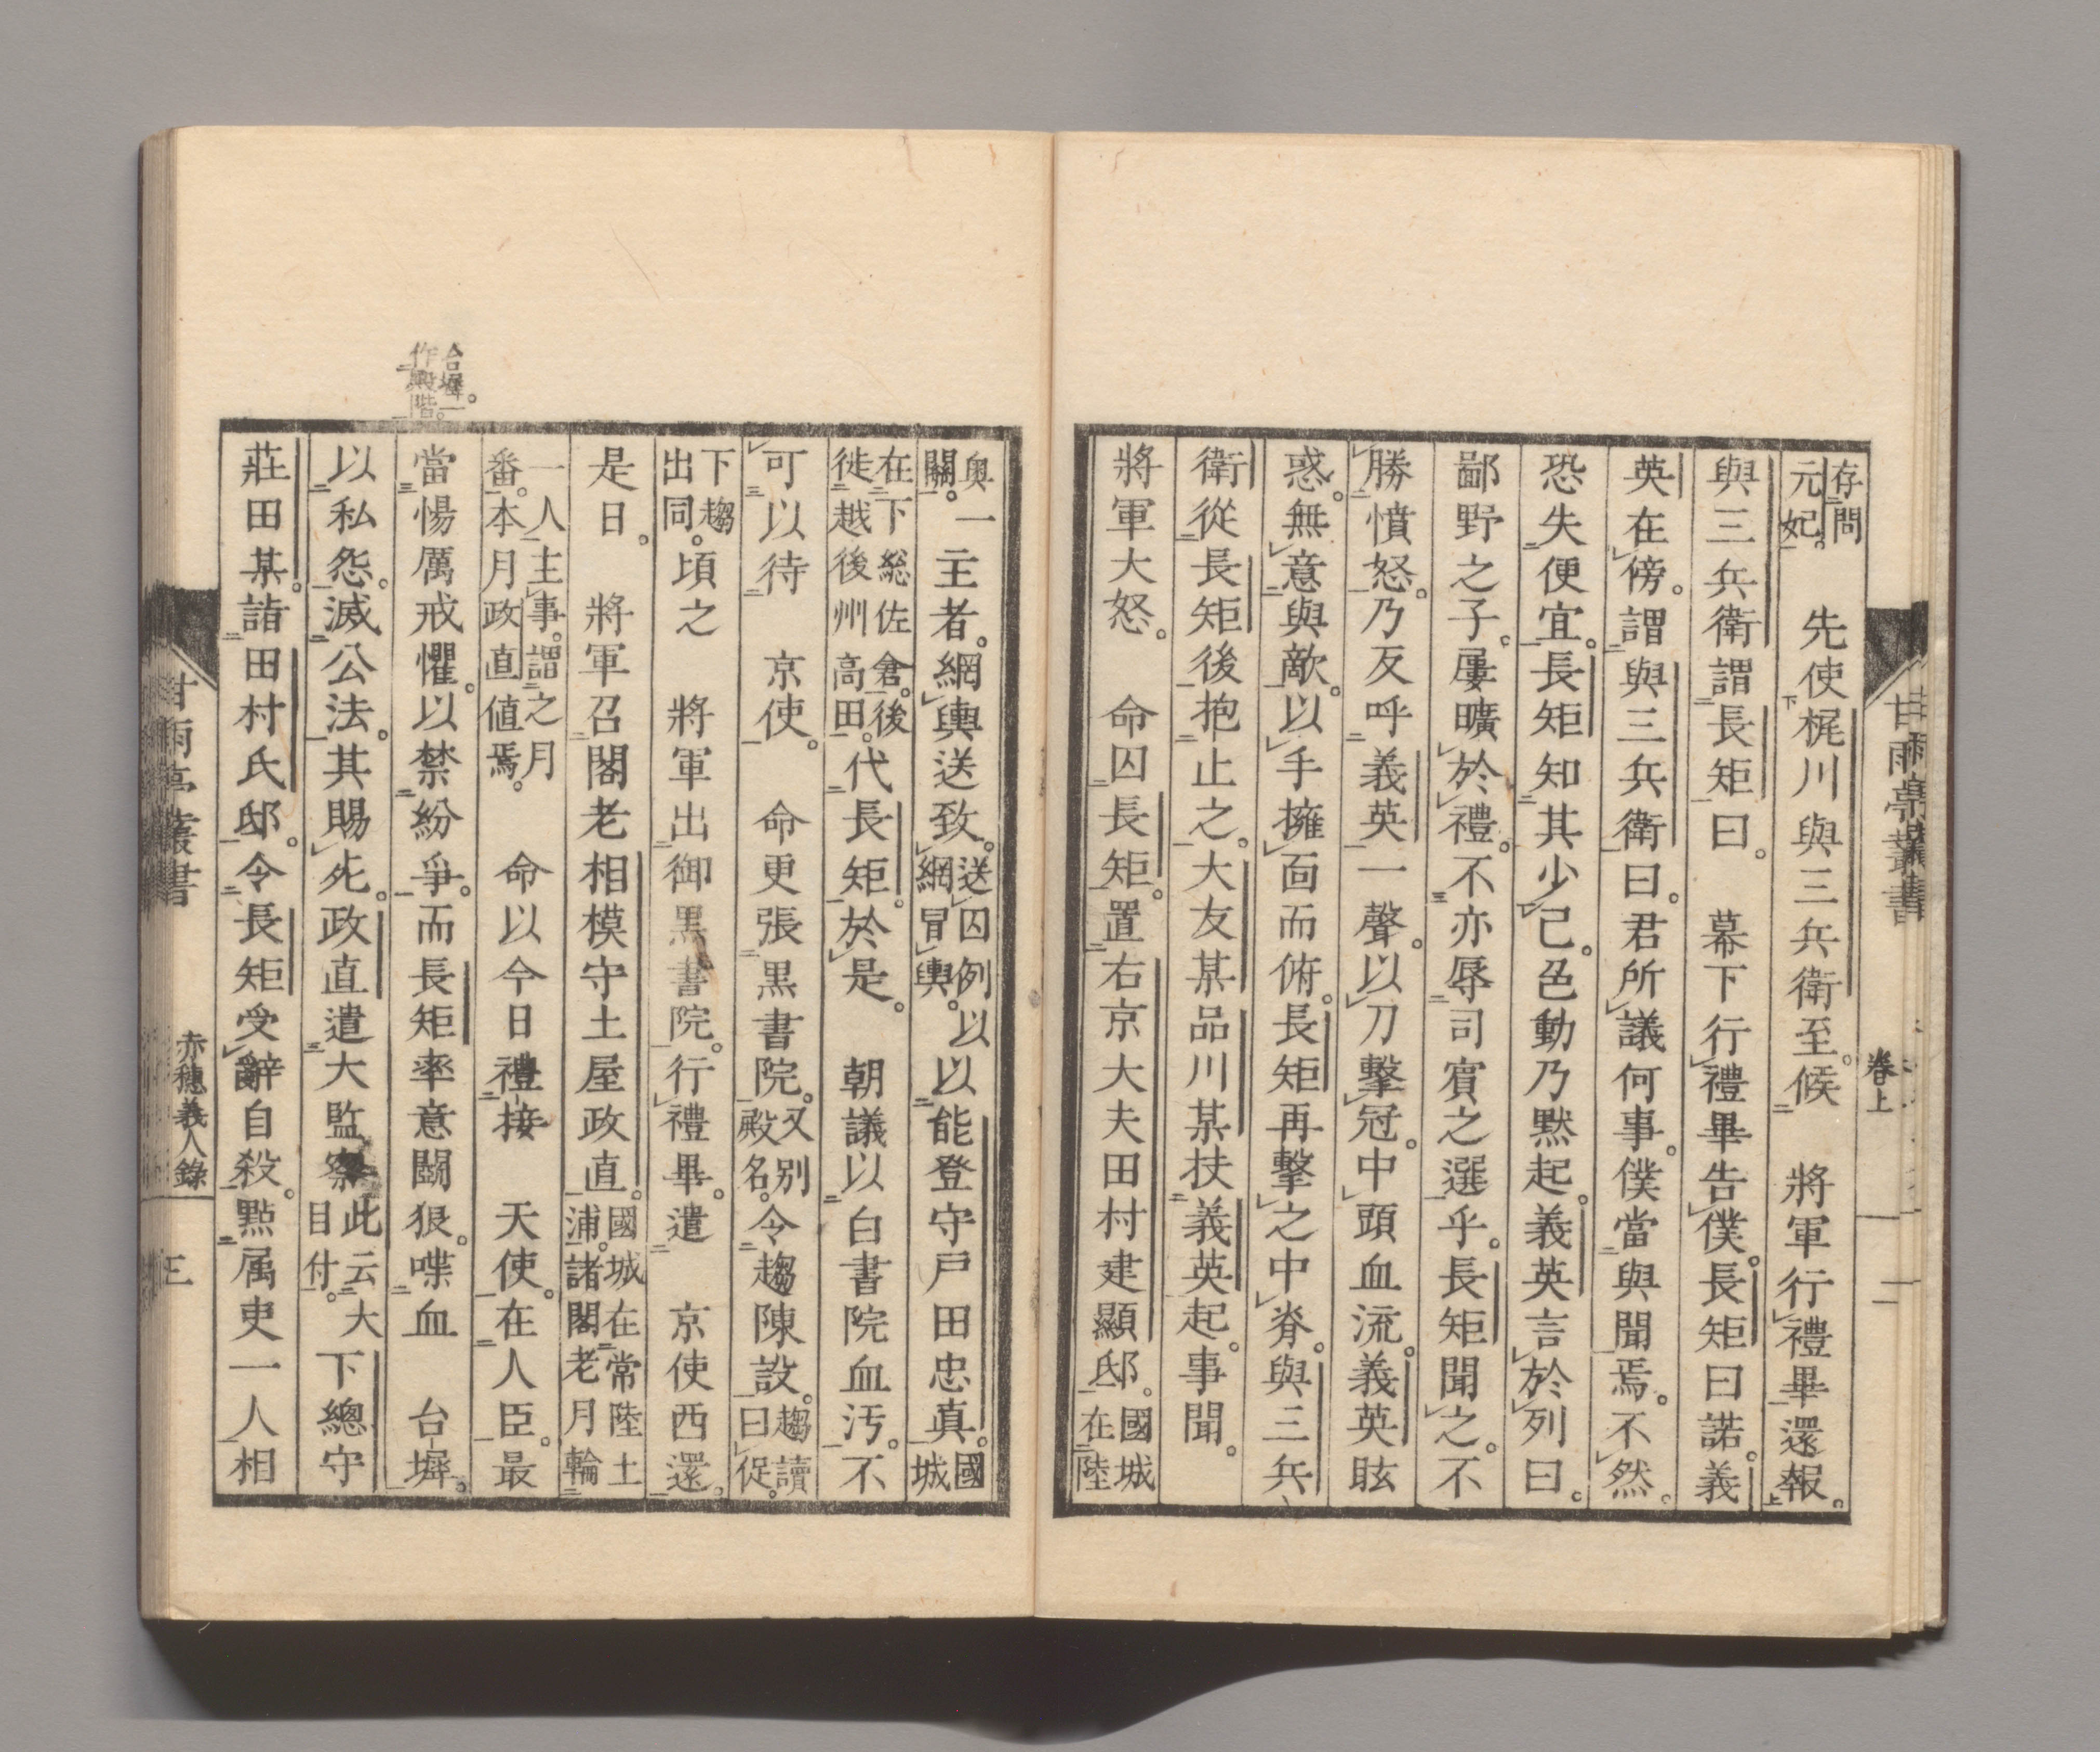 甘雨亭叢書
卷上
二
存問元妃。先使梶川與三兵衛至。候將軍行禮畢還報。
與三兵衛謂長矩曰。幕下行禮畢告僕。長矩曰諾。義
英在傍。謂與三兵衛曰。君所議何事。僕當與聞焉。不然。
恐失便宜。長矩知其少己。色動乃黙起。義英言於列曰。
鄙野之子。屢曠於禮。不亦辱司賓之選乎。長矩聞之。不
勝憤怒。乃反呼義英一聲。以刀擊冠。中頭血流。義英眩
惑。無意與敵。以手擁面而俯。長矩再擊之中脊。與三兵
衛從長矩後抱止之。大友某品川某扶義英起。事聞。
將軍大怒。命囚長矩。置右京大夫田村建顯邸。國城在陸
奥一關。主者。網輿送致。送囚例以網冒輿。以能登守戸田忠真。國城
在下総佐倉。後徙越後州高田。代長矩。於是。朝議以白書院血汚。不
可以待京使。命更張黒書院。又別殿名。令趨陳設。趨讀曰促。
下趨出同。頃之將軍出御黒書院。行禮畢。遣京使西還。
是日。將軍召閣老相模守土屋政直。國城在常陸土浦。諸閣老月輪
一人主事。謂之月番。本月政直値焉。命以今日禮接天使。在人臣。最
當惕厲戒懼。以禁紛爭。而長矩率意鬪狠。喋血台墀。
以私怨。滅公法。其賜死。政直遣大監察此云大目付。下總守
莊田某。詣田村氏邸。令長矩受辭自殺。點属吏一人相
台墀。一作殿階。
甘雨亭叢書
赤穗義人錄
三